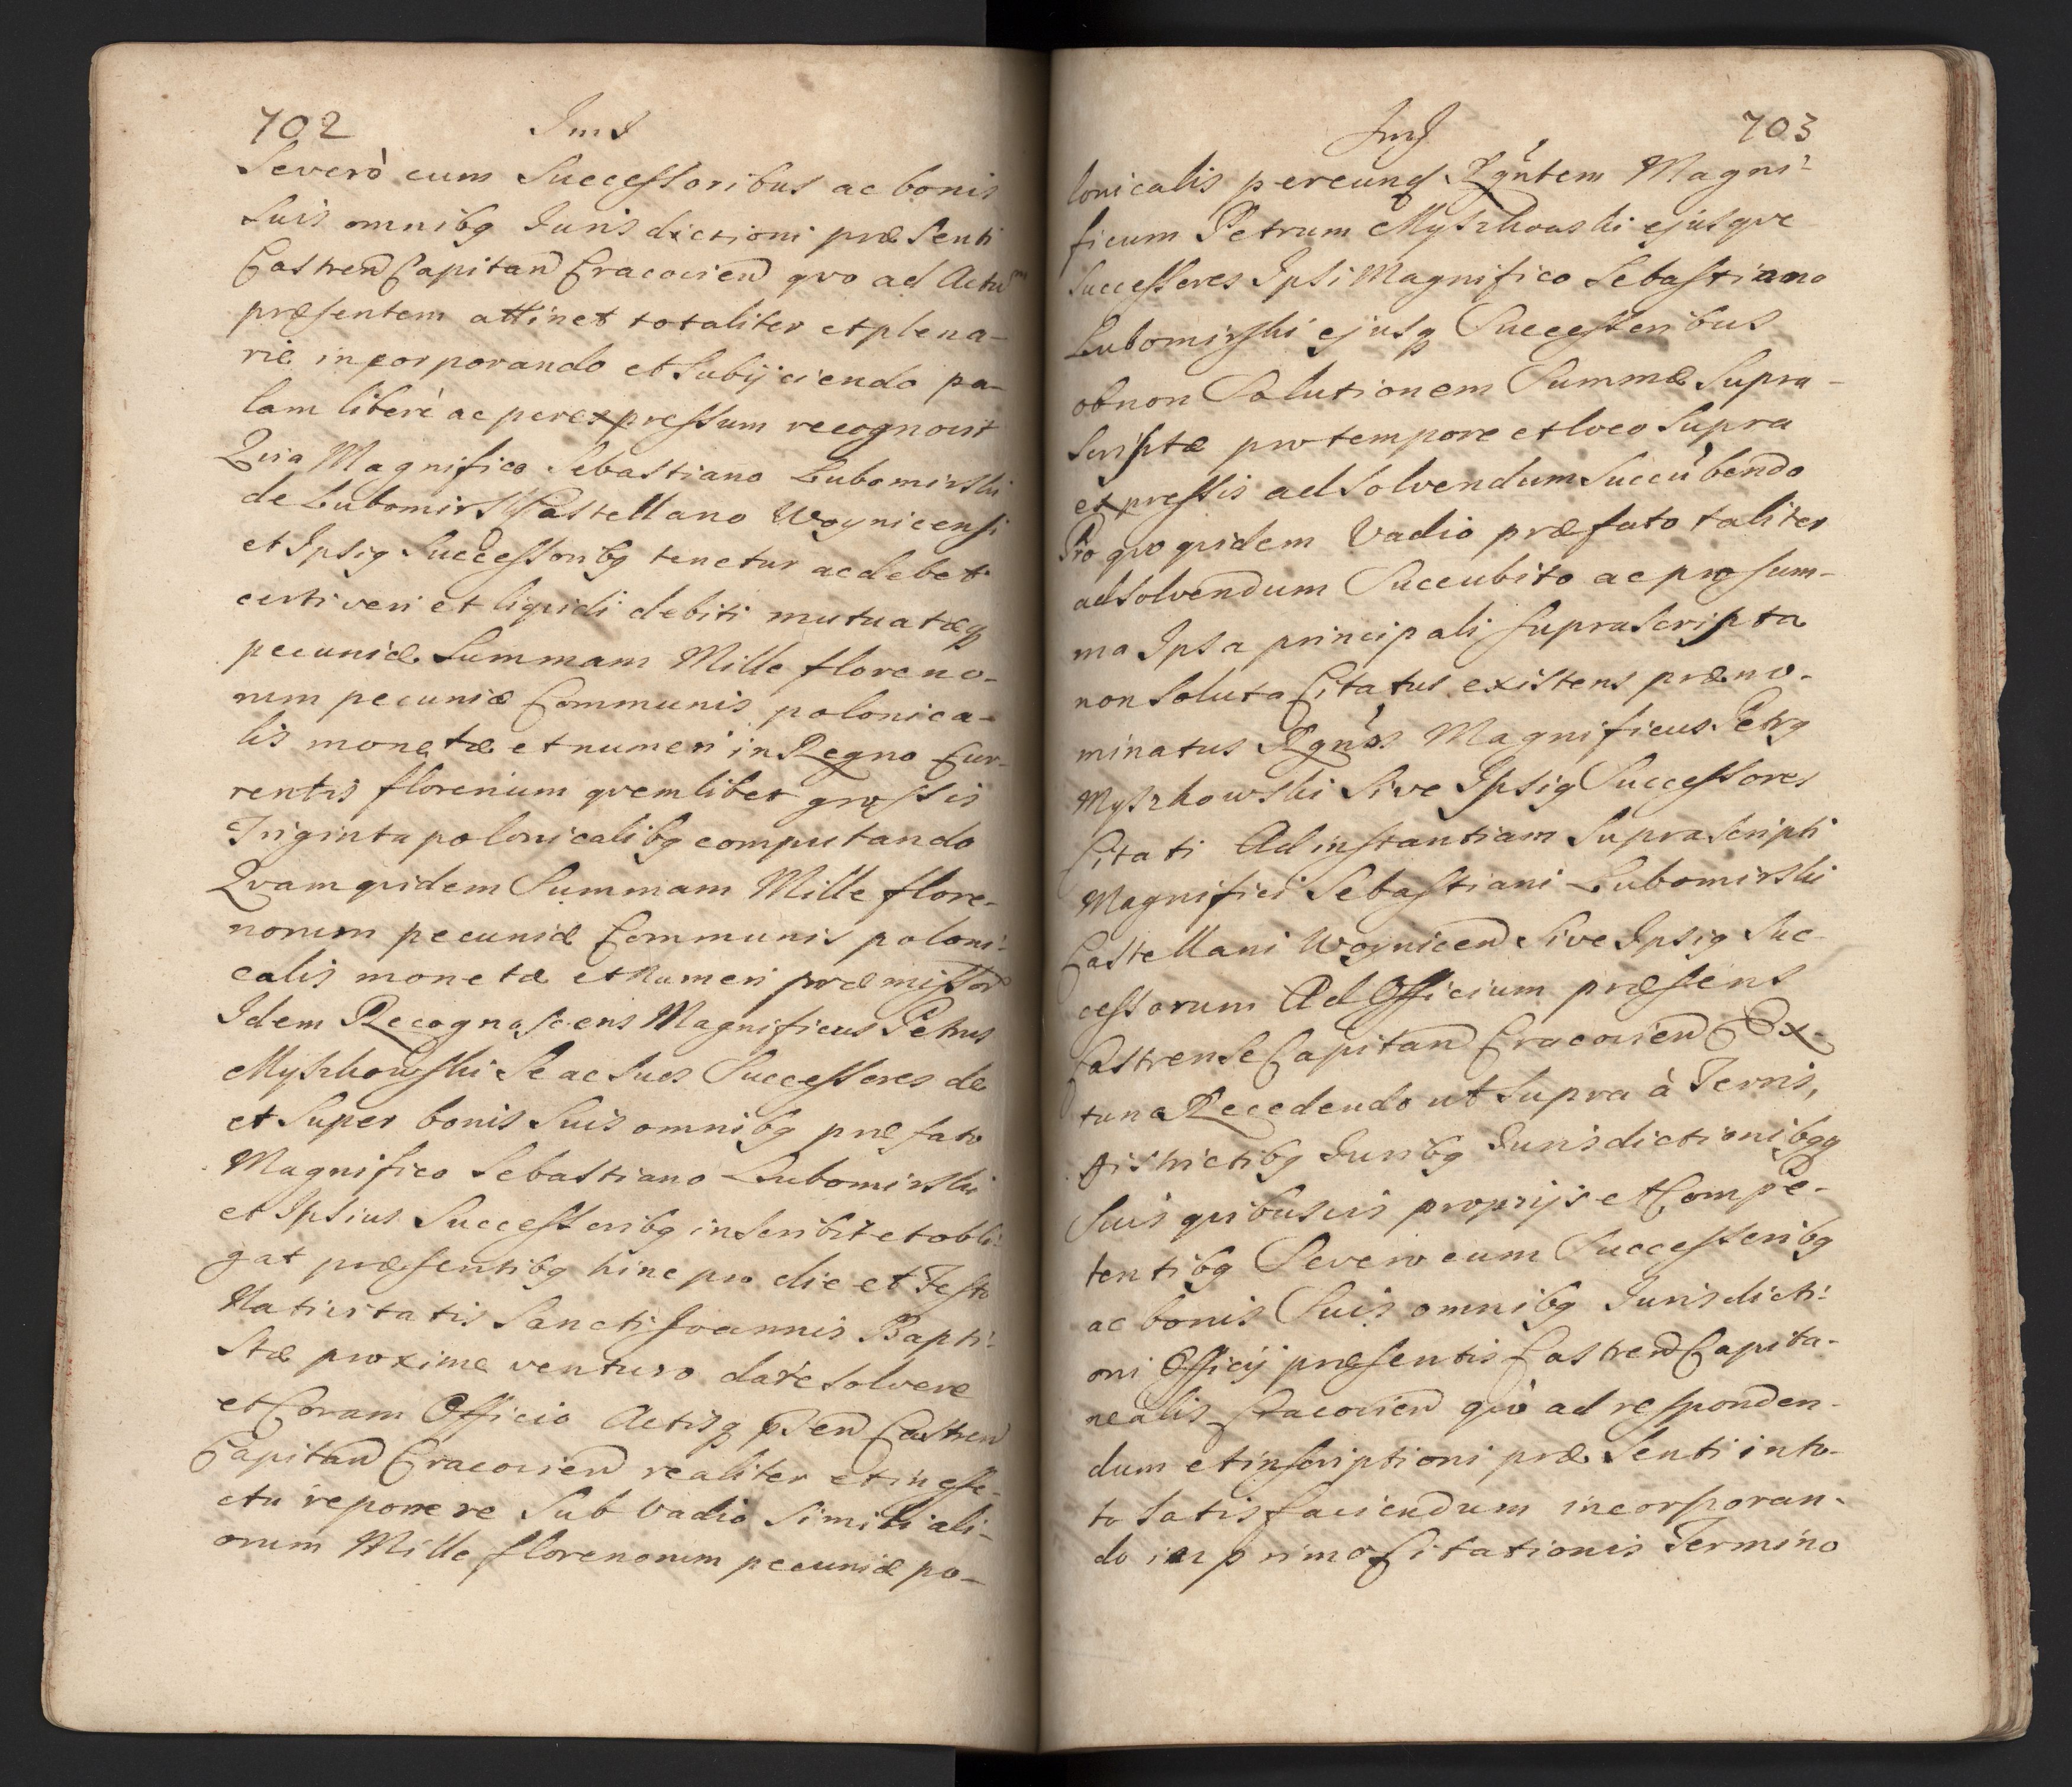 702 Ims
Severò cum Successoribus ac bonis
Suis omnibq Jurisdictioni præsenti
Castren Capitan Cracovien qvo ad Actū
præsentem attinet totaliter et plena-
riè incorporando et Subijciendo pa-
lam liberè ac per expressum recognovit
Qvia Magnifico Sebastiano Lubomirski
de Lubomirz Castellano Woynicensi
et Ipsiq Successoribq tenetur ac debet
certi veri et liqvidi debiti mutuatæq
pecuniæ Summam Mille floreno-
rum pecuniæ Communis polonica-
lis monetæ et numeri in Regno Cur-
rentis florenum qvemlibet grossis
Triginta polonicalibq computando
Qvam qvidem Summam Mille flore-
norum pecuniæ Communis poloni-
calis monetæ et Numeri præmissor
Idem Recognoscens Magnificus Petrus
Myszkowski Se ac Suos Successores de
et Super bonis Suis omnibq præfato
Magnifico Sebastiano Lubomirski
et Ipsius Successoribq inscribit et obli-
gat præsentibq hinc pro die et Festo
Nativitatis Sancti Joannis Bapti-
stæ proxime venturo dare Solvere
et Coram Officio Actisq psen Castren
Capitan Cracovien realiter et in effe-
ctu reponere Sub Vadio Simili ali-
orum Mille florenorum pecuniæ po-
Ims 703
lonicalis per eunq Rgntem Magni-
ficum Petrum Myszkowski ejusqve
Successores Ipsi Magnifico Sebastiano
Lubomirski ejusq Successoribus
ob non Solutionem Summæ Supra-
scriptæ pro tempore et loco Supra
expressis ad Solvendum Succūbendo
Pro qvo qvidem Vadio præfato taliter
ad Solvendum Succubito ac pro Sum-
ma Ipsa principali Suprascripta
non Soluta Citatus existens præno-
minatus Rgnos Magnificus Petrq
Myszkowski Sive Ipsiq Successores
Citati Ad instantiam Suprascripti
Magnifici Sebastiani Lubomirski
Castellani Woynicen Sive Ipsiq Suc-
cessorum Ad Officium præsens
Castrense Capitan Cracovien Ex
tunc Recedendo ut Supra à Terris,
Districtibq Juribq Jurisdictionibqq
Suis qvibusvis proprijs et Compe-
tentibq Severo cum Successoribq
ac bonis Suis omnibq Jurisdicti-
oni Officij præsentis Castren Capita-
nealis Cracovien qvò ad responden-
dum et inscriptioni præsenti in to-
to Satisfaciendum incorporan-
do in primo Citationis Termino